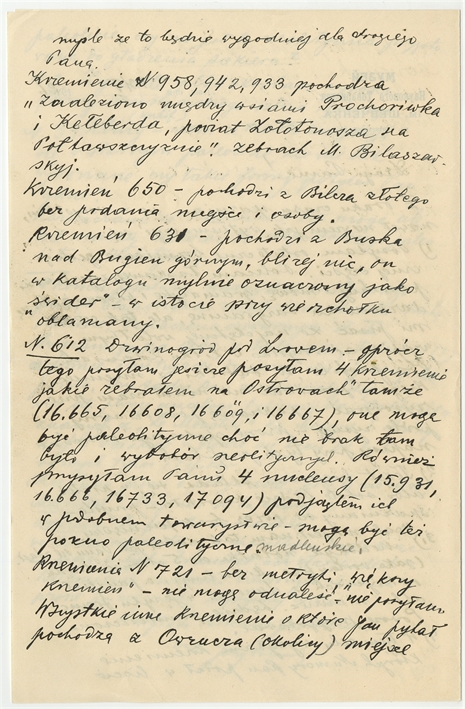 myślę że to będzie wygodniej dla drogiego
Pana.
Krzemienie N 958, 942, 933 pochodzą
"znaleziono między wsiami Prochoriwka
i Kełeberda, powiat Zołotonosza na
Połtawszczyźnie". zebrach M. Bilaszew-
skyj.
Krzemień 650 - pochodzi z Bilcza złotego
bez podania miejsc i osoby.
Krzemień 631 - pochodzi z Buska
nad Bugiem górnym, bliżej nic, on
w katalogu mylnie oznaczony jako
"świder" - w istocie przy wierzchołku
obłamany.
N. 612 Dzwinogród pod Lwowem - oprócz
tego posyłam jeszcze 4 krzemienie
jakie zebrałem na "Ostrovach" tamże
(16.665, 16608, 16609, i 16667), one mogą
być paleolityczne choć nie brak tam
było i wyrobów neolitycznych. Również
przysyłam Panu 4 nucleusy (15.931,
16.666, 16733, 17094) podjąłem ich
w podobnem towarzystwie - mogą być też
pozno paleolityczne.
Krzemienia N 721 - bez metryki,
krzemień" - nie mogą odnaleść - nie posyłam
Wszystkie inne krzemienie o które Pan pytał
pochodzą z Owrucza (okolicy) miejsc